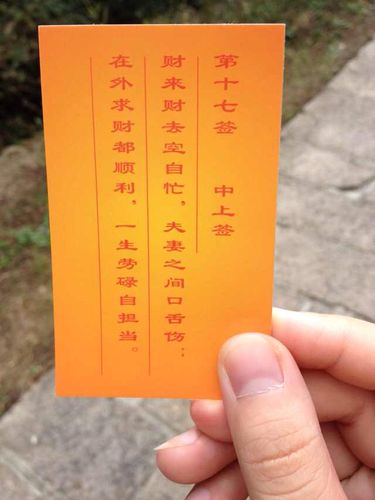 第十七签 中上签
财来财去空自忙，夫妻之间口舌伤．
在外求财都顺利，一生劳碌自担当。